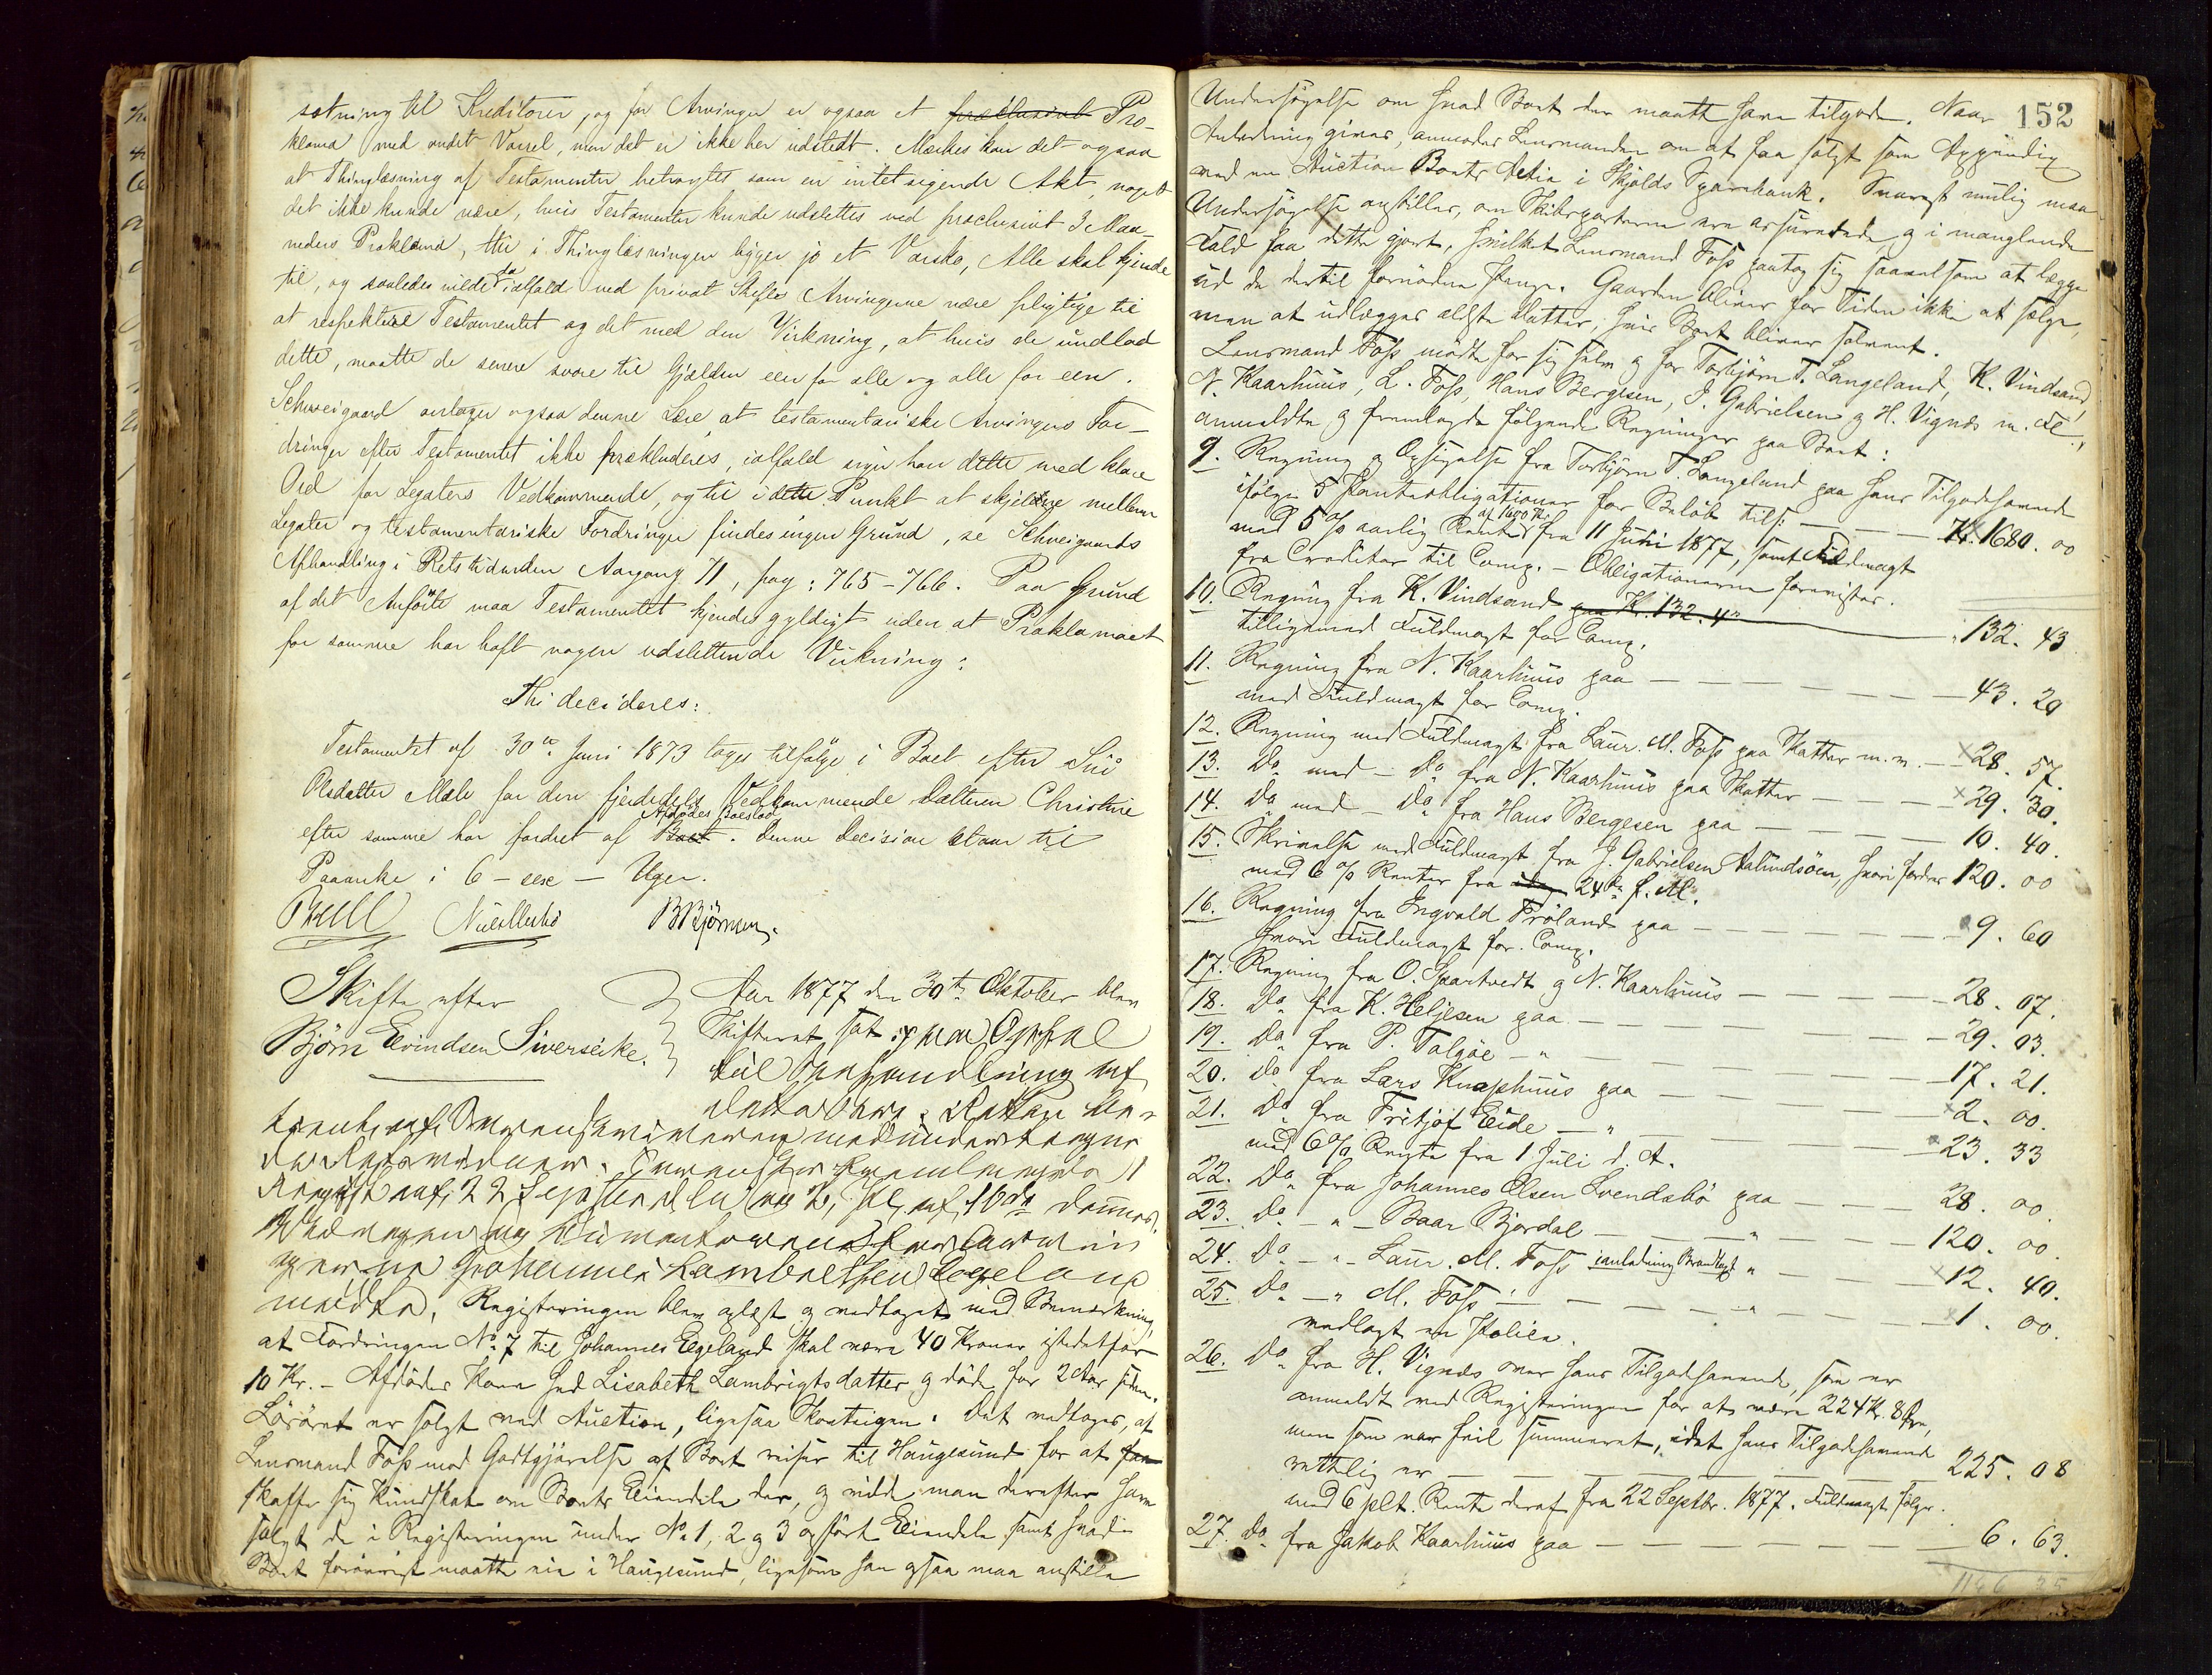 sætning til Kreditorer, og for Arvinger er ogsaa et præclusivt Pro-
klama med ondet Varsel, men det er ikke her udstedt. Mærkes kan det ogsaa
at Thinglæsning af Testamenter betragtes som en intetsigende Akt, noget
det ikke kunde være, hvis Testamenter kunde udslettes ved præclusivt 3 Maa-
neders Proklama, thi i Thinglæsningen ligger jo et Varsko, Alle skal kjende
til, og saaledes vilde da ialfald ved privat Skifte Arvingerne være pligtige til
at respektere Testamentet og det med den Virkning, at hvis de undlod
dette, maatte de senere svare til Gjælden een for alle og alle for een.
Schweigaard antager ogsaa denne Lære, at testamentariske Arvingers For-
dringer efter Testamentet ikke prækluderes, ialfald siger han dette med klare
Ord for Legaters Vedkommende, og til i dette Punkt at skjelne mellem
Legater og testamentariske Fordringer findes ingen Grund, se Schweigaards
Afhandling i Retstidenden Aargang 71, pag: 765-766. Paa Grund
af det Anförte maa Testamentet kjendes gyldigt uden at Proklamaet
for samme har haft nogen udslettende Virkning:
Thi decideres:
Testamentet af 30te Juni 1873 tages tilfølge i Boet efter Siri
Olsdatter Mæle for den fjerdedels Vedkommende Datteren Christine
efter samme har fordret af Boet Afdödes Boeslod. Denne Decision staar til
Paaanke i 6 - sex - Uger.
BBjörnsen.
Skifte efter
Björn Eivindsen Siverseike.
Aar 1877 den 30te Oktober blev
Skifteret sat paa Opdal
til Behandling af
dette Bo. Retten be-
tjent af Sorenskriveren med undertegnede
Retsvidner.
22 September
Johannes Lambretsen Egeland
mödte. Registeringen blev oplæst og vedtaget med Bemærkning,
at Fordringen No 7 til Johannes Egeland skal være 40 Kroner istedetfor
10 Kr. - Afdödes Kone hed Lisabeth Lambrigtsdatter og döde for 2 Aar siden.
Lösöret er solgt ved Auction, ligesaa Skoteigen. Det vedtoges, at
Lensmand Foss mod Godtgjörelse af Boet reiser til Haugesund for at faa
skaffe sig Kundskab om Boets Eiendele der, og vilde man derefter have
solgt de i Registeringen under No 1, 2 og 3 opført Eiendele samt hvad
Boet forövrigt maatte eie i Haugesund, ligesom han ogsaa maa anstille
152
Undersögelse om hvad Boet der maatte have tilgode. Naar
Anledning gives, anmodes Lensmanden om at faa solgt som Appendix
ved en Auction Boets Actie i Skjolds Sparebank. Snarest mulig maa
Undersögelse anstilles, om Skibsparterne ere assurerede og i manglende
Fald faa dette gjort, hvilket Lensmand Foss paatog sig saavelsom at lægge
ud de dertil fornödne Penge. Gaarden bliver for Tiden ikke at sælge,
men at udlægges ældste Datter, hvis Boet bliver solvent.
Lensmand Foss mödte for sig selv og for Torbjörn T. Langeland, K. Vindsand,
N. Kaarhuus, L. Foss, Hans Bergesen, J. Gabrielsen og H. Vignes m. Fl.,
anmeldte og fremlagde fölgende Regninger paa Boet:
9. Regning og Opsigelse fra Torbjörn T. Langeland paa hans Tilgodehavende
ifölge 5 Panteobligationer for Beløb tils: — — Kr. 1680. 00
med 5 % aarlig Renter af 1600 Kr. fra 11 Juni 1877, samt Fuldmagt
fra Creditor til Comp. - Obligationerne forevistes.
10. Regning fra K. Vindsand paa Kr. 132. 4 — " 132. 43
tilligemed Fuldmagt for Comp.
11. Regning fra N. Kaarhuus paa — — — 43. 20
med Fuldmagt for Comp.
12. Regning med Fuldmagt fra Laur. M. Foss paa Skatter m.m. — x 28. 57.
13. Do med - Do fra N. Kaarhuus paa Skatter — — x 29. 30.
14. Do med - Do fra Hans Bergesen paa — — — 10. 40.
15. Skrivelse med Fuldmagt fra J. Gabrielsen Aalundsöen, hvori fordres 120. 00
med 6 % Renter fra 24de f. M.
16. Regning fra Ingvald Fröland paa — — — 9. 60
hvori Fuldmagt for Comp.
17. Regning fra O. Spaatvedt og N. Kaarhuus — — — 28. 07.
18. Do fra K. Heljesen paa — — — 29. 03.
19. Do fra P. Talgöe — " — — 17. 21.
20. Do fra Lars Knaphuus paa — — — x 2. 00.
21. Do fra Fritjof Eide — " — — x 23. 33
med 6 % Rente fra 1 Juli d. A.
22. Do fra Johannes Olsen Svendsbö paa — — 28. 00.
23. Do - " - Baar Bjordal — " — 120. 00.
24. Do - " - Laur. M. Foss " — x 12. 40.
25. Do - " M. Foss — " — x 1. 00.
vedlagt en Police.
26. Do fra H. Vignes over hans Tilgodehavende, som er
anmeldt ved Registeringen for at være 224 Kr. 8 Öre,
men som var feil summeret, idet hans Tilgodehavende
rettelig er — — — 225. 08
med 6 pCt. Rente deraf fra 22 Septbr. 1877. Fuldmagt fölger.
27. Do fra Jakob Kaarhuus paa — — — 6. 63.
1146 35